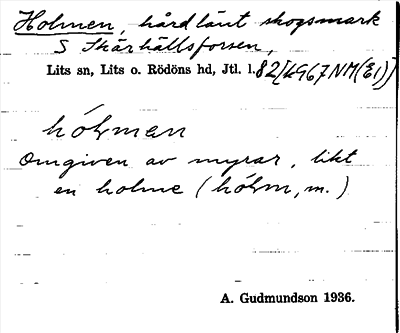 Holmen, hårdlänt skogsmark
S Skärhällsforsen,
Lits sn, Lits o. Rödöns hd, Jtl. l.
hólmen
Omgiven av myrar, likt
en holme (hólm, m.)
A. Gudmundson 1936.